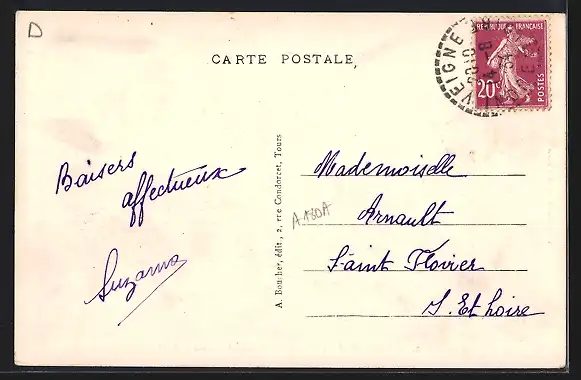 D
CARTE POSTALE
RÉPUBLIQUE FRANÇAISE
20c
POSTES
VEIGNE
Baisers
affectueux
Suzanne
A. Boucher, édit., 2, rue Condorcet, Tours
A180A
Mademoiselle
Arnault
Saint Flovier
I. Et Loire